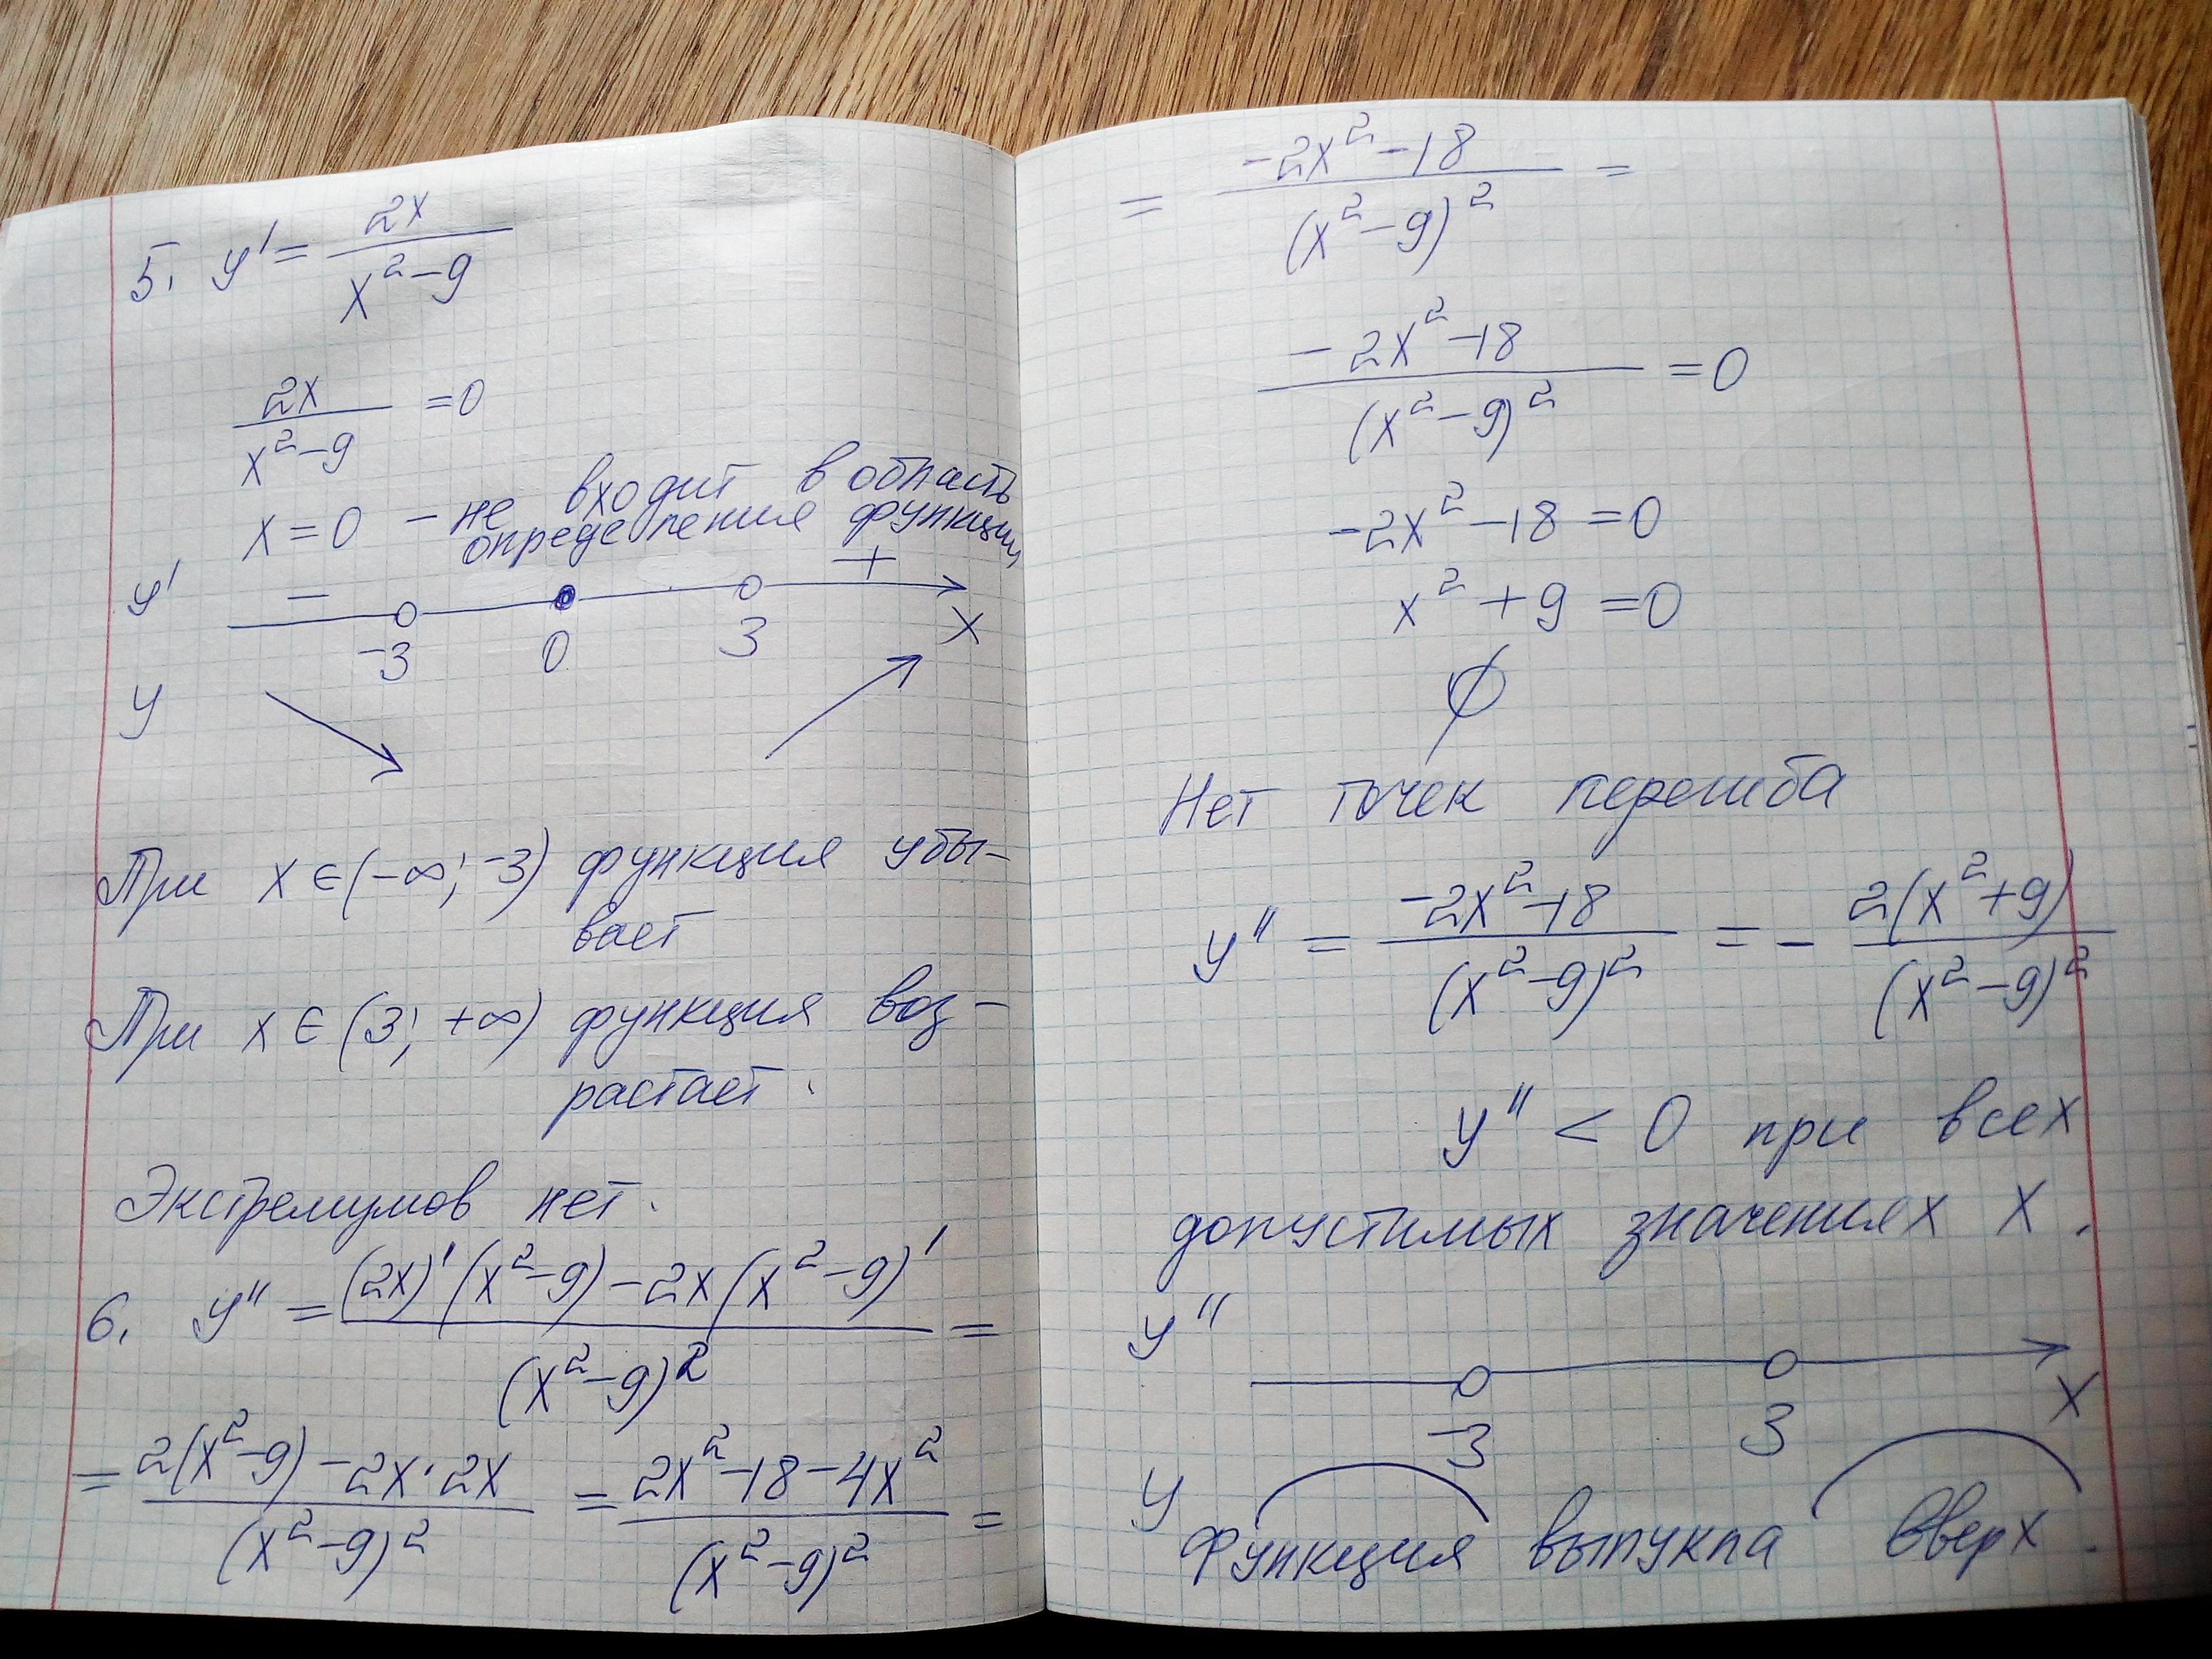 5. y' = 2x / (x² - 9)
2x / (x² - 9) = 0
x = 0 - не входит в область
определения функции
y' - +
-3 0 3 x
y
При x ∈ (-∞; -3) функция убы-
вает
При x ∈ (3; +∞) функция воз-
растает.
Экстремумов нет.
6. y'' = ((2x)' (x² - 9) - 2x (x² - 9)') / (x² - 9)² =
= (2(x² - 9) - 2x · 2x) / (x² - 9)² = (2x² - 18 - 4x²) / (x² - 9)² =
= (-2x² - 18) / (x² - 9)² =
(-2x² - 18) / (x² - 9)² = 0
-2x² - 18 = 0
x² + 9 = 0
∅
Нет точек перегиба
y'' = (-2x² - 18) / (x² - 9)² = - 2(x² + 9) / (x² - 9)²
y'' < 0 при всех
допустимых значениях x.
y''
-3 3 x
y
Функция выпукла вверх.